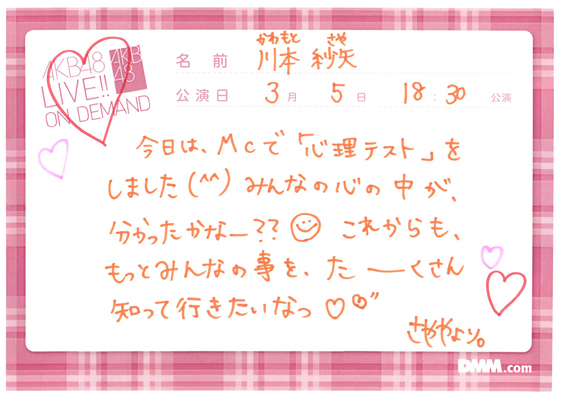 AKB48
LIVE!!
ON DEMAND
AKB
48
かわもと さや
名前 川本 紗矢
公演日 3月 5日 18:30 公演
今日は、MCで「心理テスト」を
しました(^^)みんなの心の中が、
分かったかなー??これからも、
もっとみんなの事を、たーくさん
知って行きたいなっ♡
さややより。
DMM.com